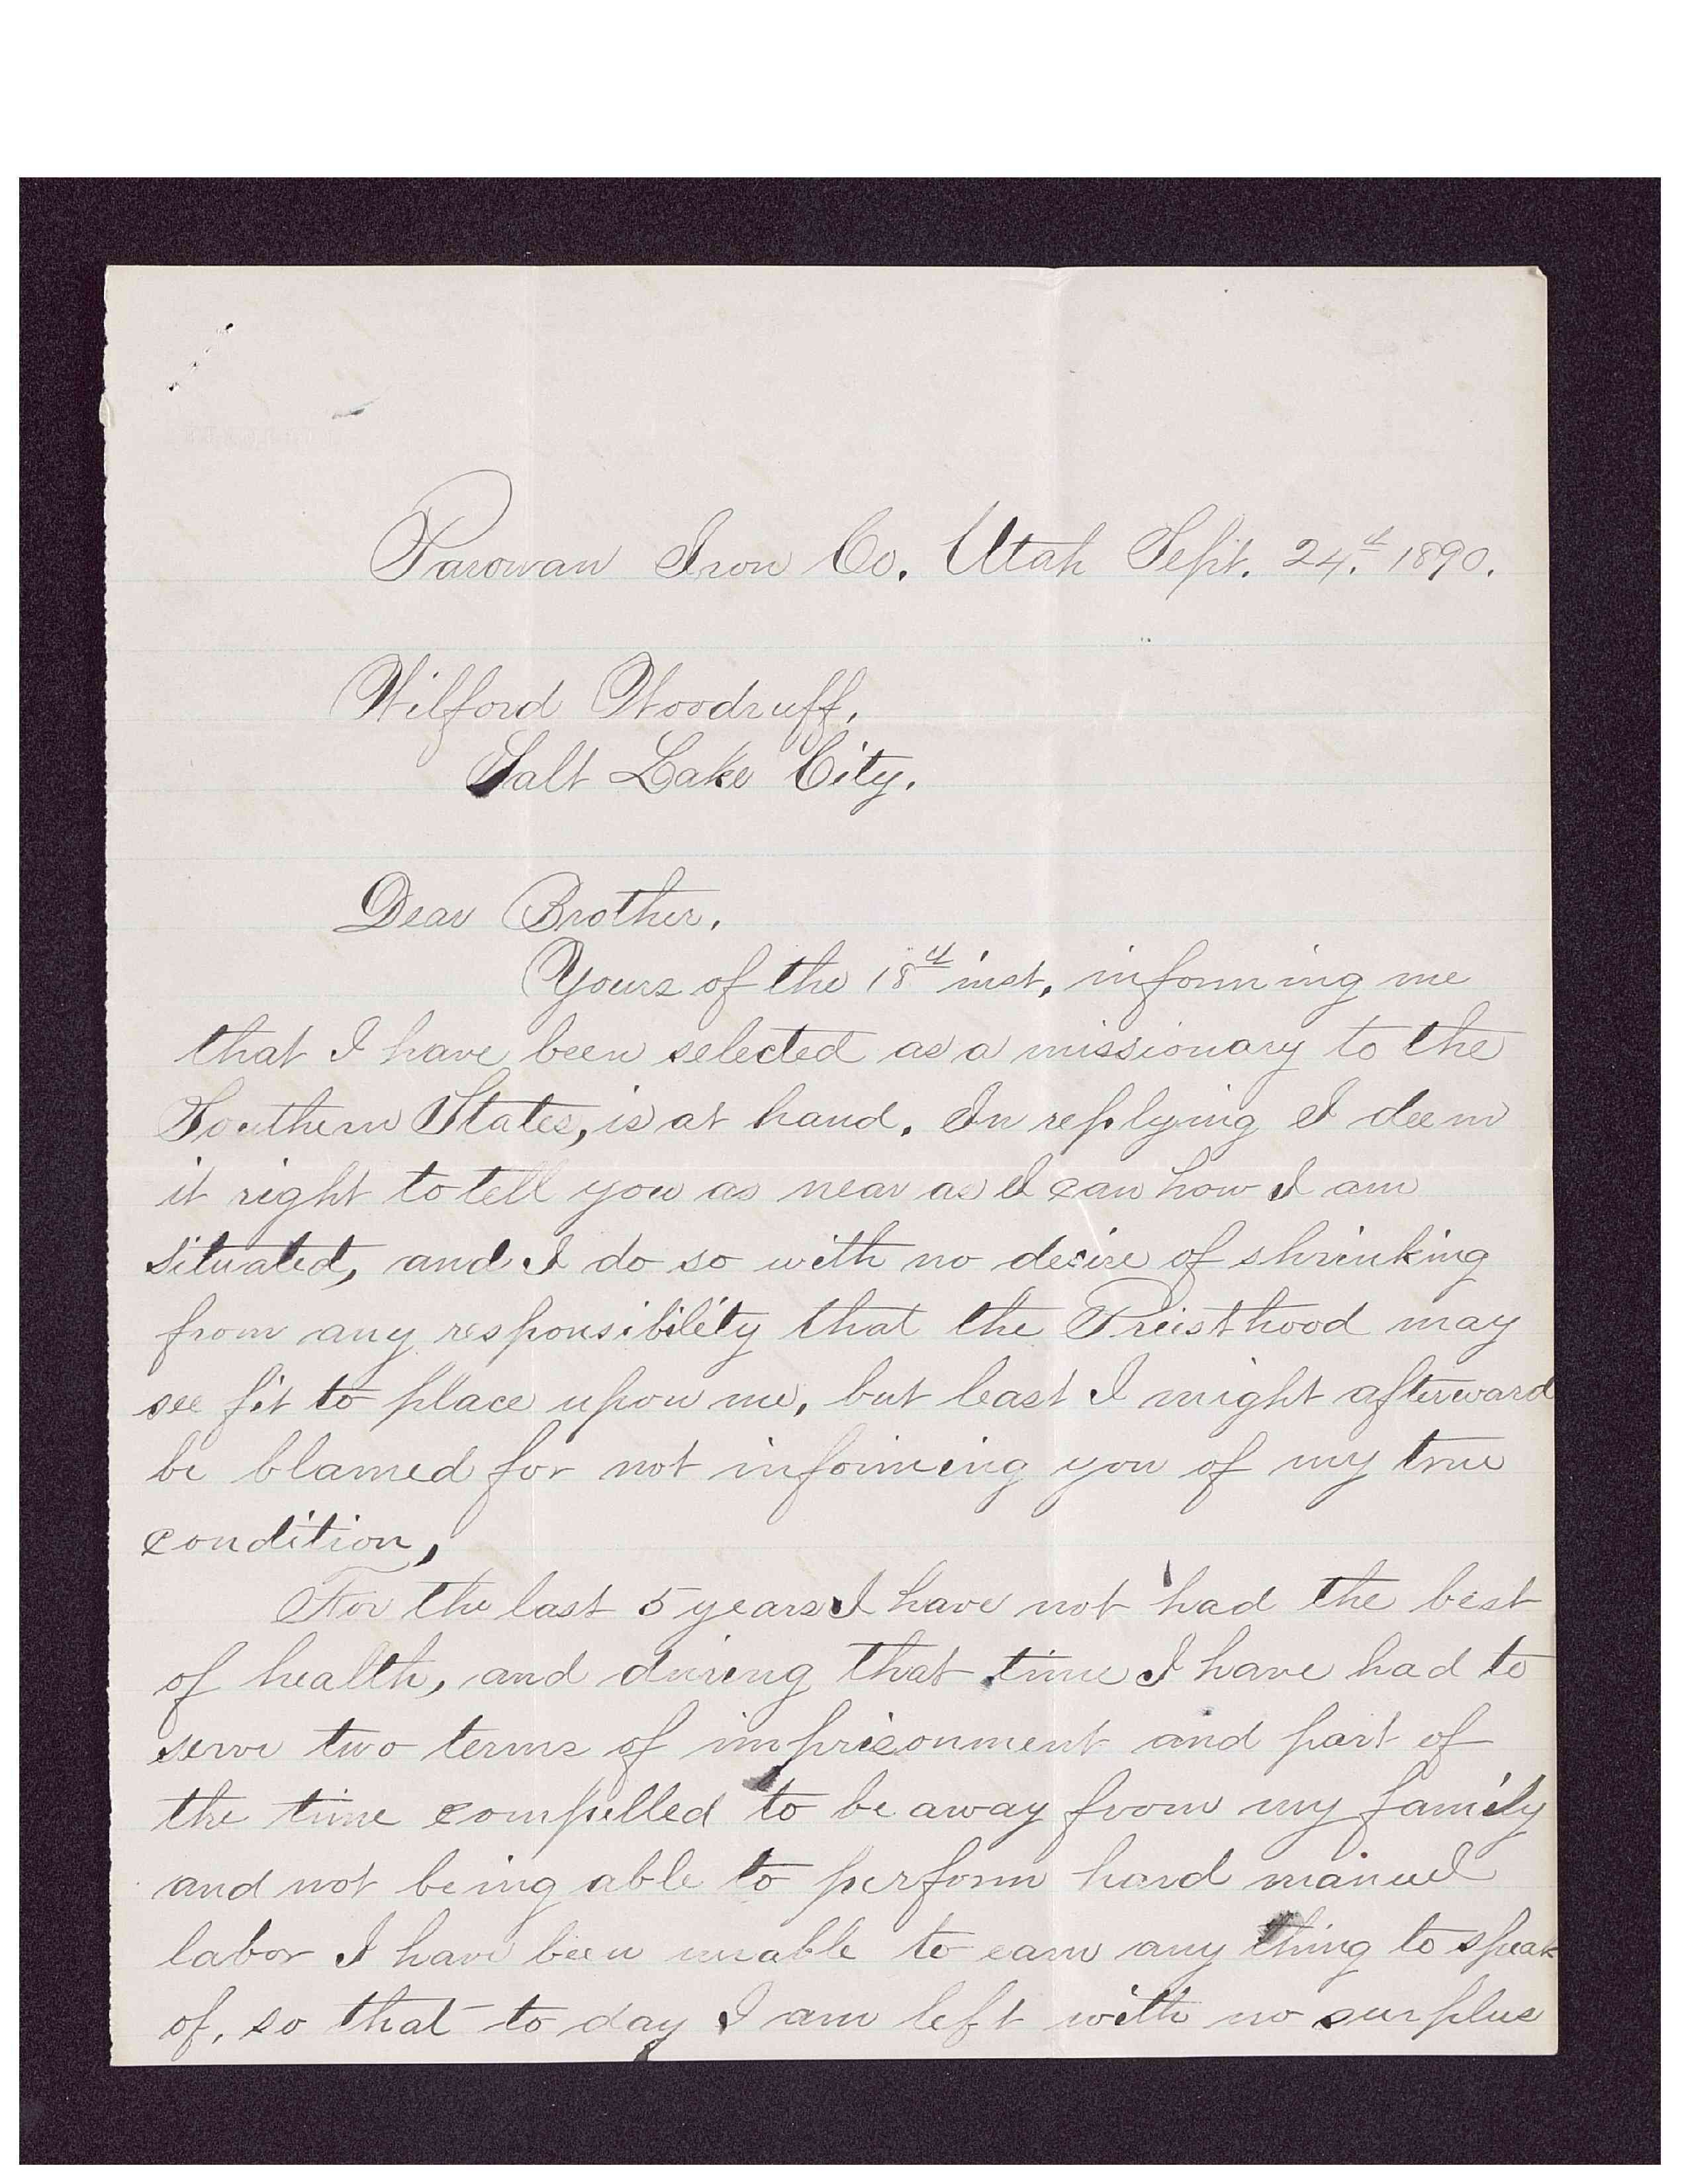 Parowan Iron Co. Utah Sept. 24.th 1890.
Wilford Woodruff,
Salt Lake City.
Dear Brother.
Yours of the 18th inst, informing me
that I have been selected as a missionary to the
Southern States, is at hand. In replying I deem
it right to tell you as near as I can how I am
situated, and I do so with no desire of shrinking
from any responsibility that the Preisthood may
see fit to place upon me, but least I might afterward
be blamed for not informing you of my true
condition,
For the last 5 years I have not had the best
of health, and during that time I have had to
serve two terms of imprisonment and part of
the time compelled to be away from my family
and not being able to perform hard manuel
labor I have been unable to earn any thing to speak
of, so that to day I am left with no surplus